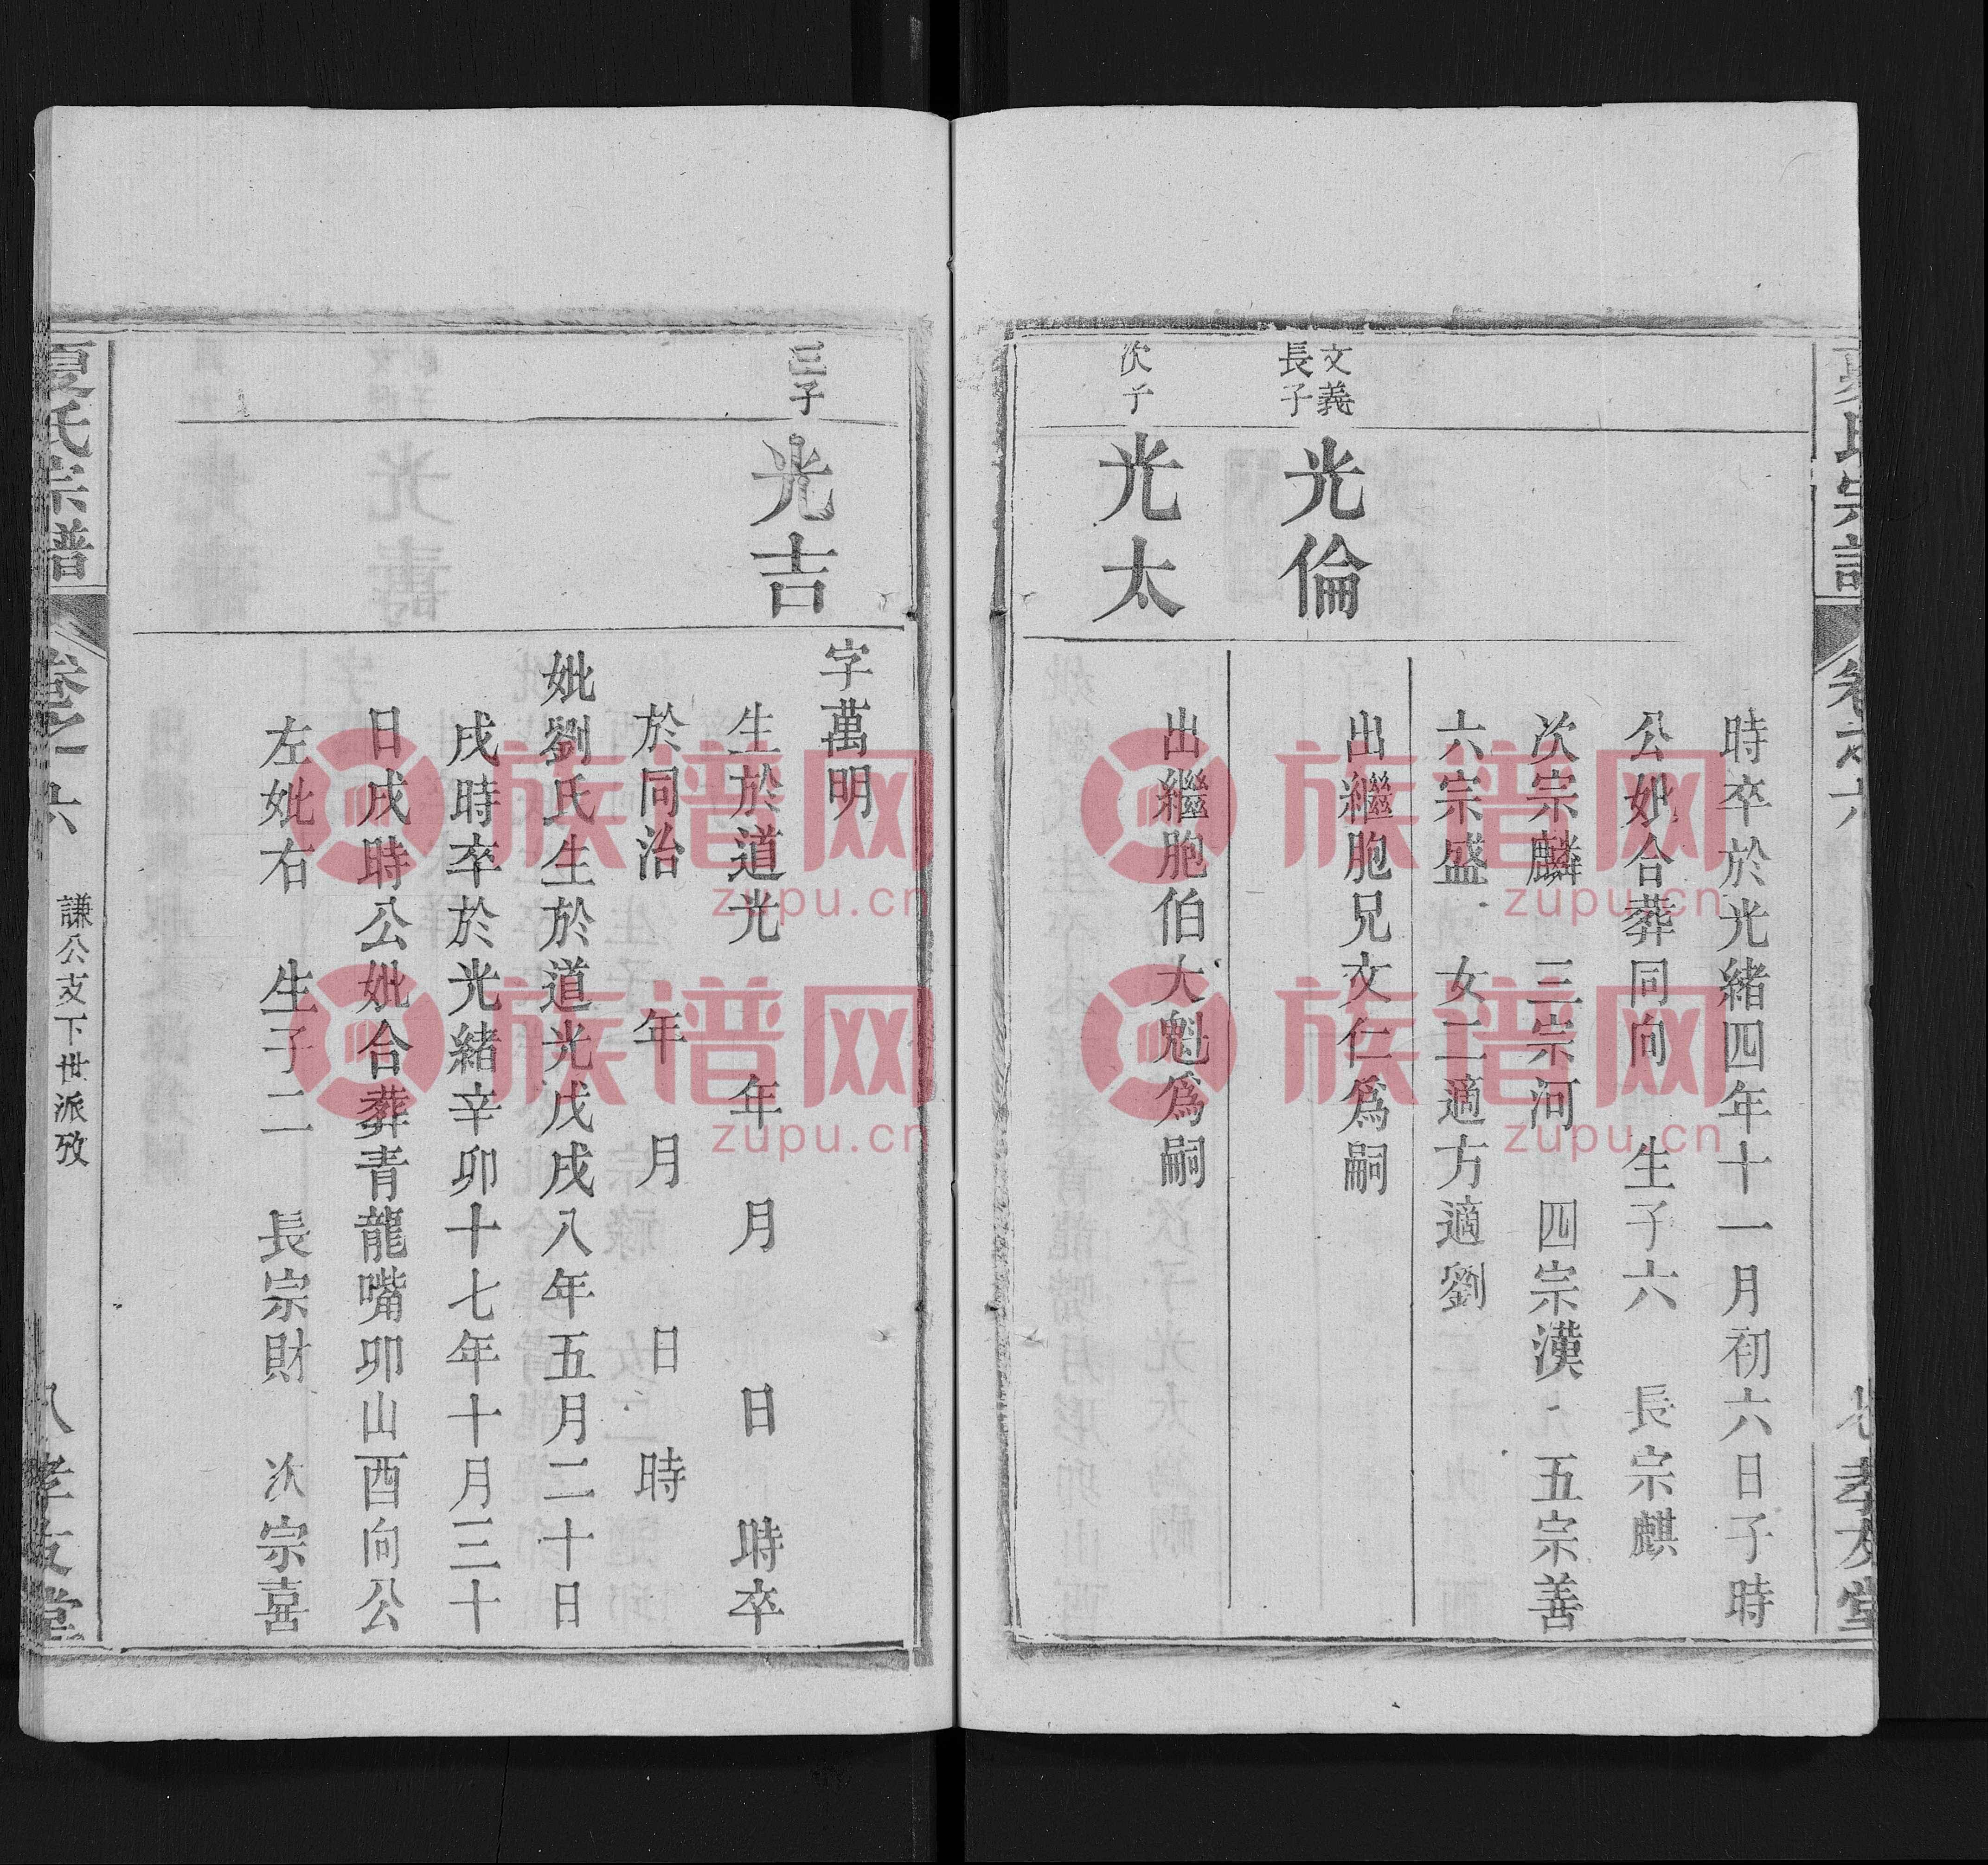 時卒於光緒四年十一月初六日子時
公妣合葬同向　生子六　長宗麒
次宗麟　三宗河　四宗漢　五宗善
六宗盛　女二適方適劉
文義
長子
光倫
出繼胞兄文仁爲嗣
次子
光太
出繼胞伯大魁爲嗣
三子
光吉
字萬明
生於道光　年　月　日　時卒
於同治　年　月　日　時
妣劉氏生於道光戊戌八年五月二十日
戌時卒於光緒辛卯十七年十月三十
日戌時公妣合葬青龍嘴卯山酉向公
左妣右　生子二　長宗財　次宗喜
夏氏宗譜
卷之六
謙公支下世派攷
孝友堂
族谱网
zupu.cn
族谱网
zupu.cn
族谱网
zupu.cn
族谱网
zupu.cn